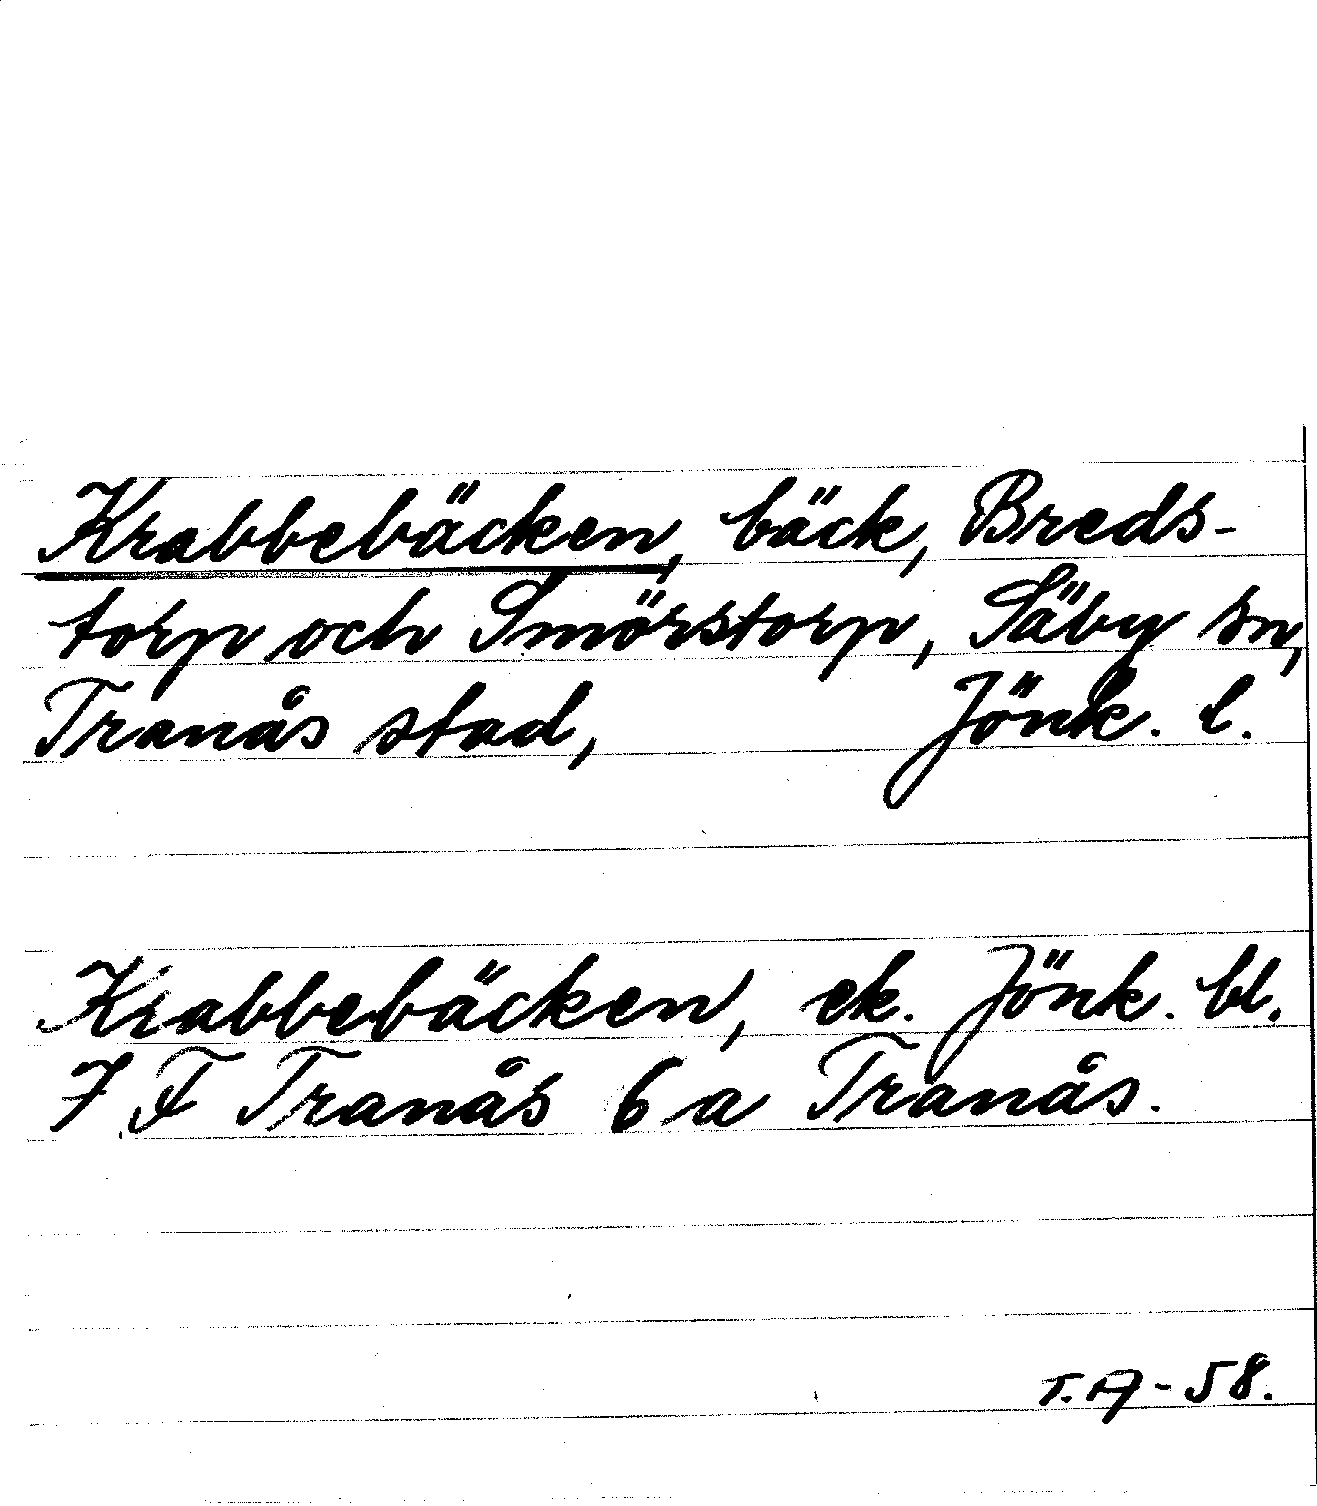 Krabbebäcken, bäck, Breds-
torp och Smörstorp, Säby sn,
Tranås stad, Jönk. l.
Krabbebäcken, ek. Jönk. bl.
7 F Tranås 6 a Tranås.
T.A-58.